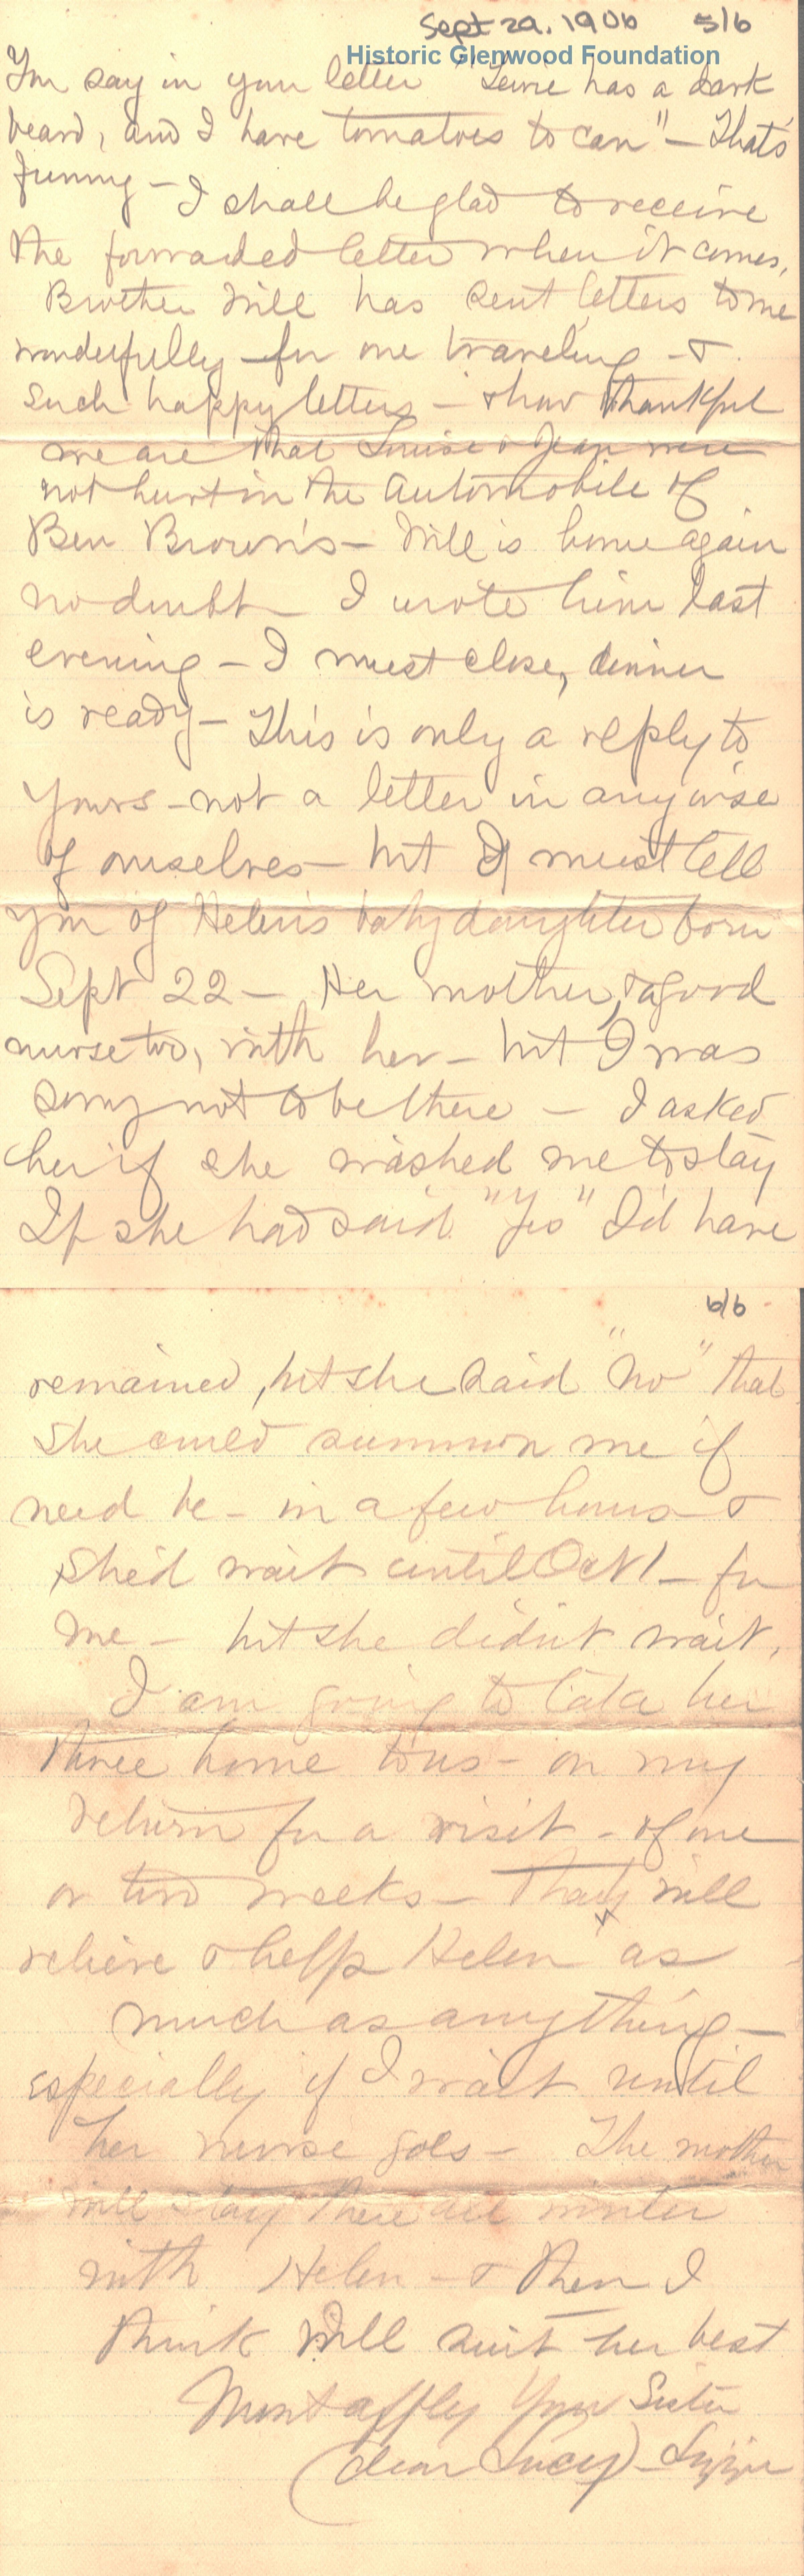 Sept 29, 1906 5/6
Historic Glenwood Foundation
You say in your letter "Lewie has a dark
beard, and I have tomatoes to can" - That's
funny - I shall be glad to receive
the forwarded letter when it comes,
Brother Will has sent letters to me
wonderfully - for one traveling - &
such happy letters - & how thankful
we are that Louise & Jean were
not hurt in the Automobile of
Ben Brown's - Will is home again
no doubt - I wrote him last
evening - I must close, dinner
is ready - This is only a reply to
yours - not a letter in anywise
of ourselves - but I must tell
you of Helen's baby daughter born
Sept 22 - Her mother, & a good
nurse too, with her - but I was
sorry not to be there - I asked
her if she wished me to stay
If she had said "Yes" I'd have
6/6
remained, but she said "No" that
she could summon me if
need be - in a few hours - &
she'd wait until Oct 1 - for
me - but she didn't wait,
I am going to take her
three home to us - on my
return for a visit - of one
or two weeks - That will
relieve & help Helen as
much as anything -
especially if I wait until
her nurse goes - The mother
will stay there all winter
with Helen - & then I
think will suit her best
Most affly Your Sister
(dear Lucy) - Lizzie